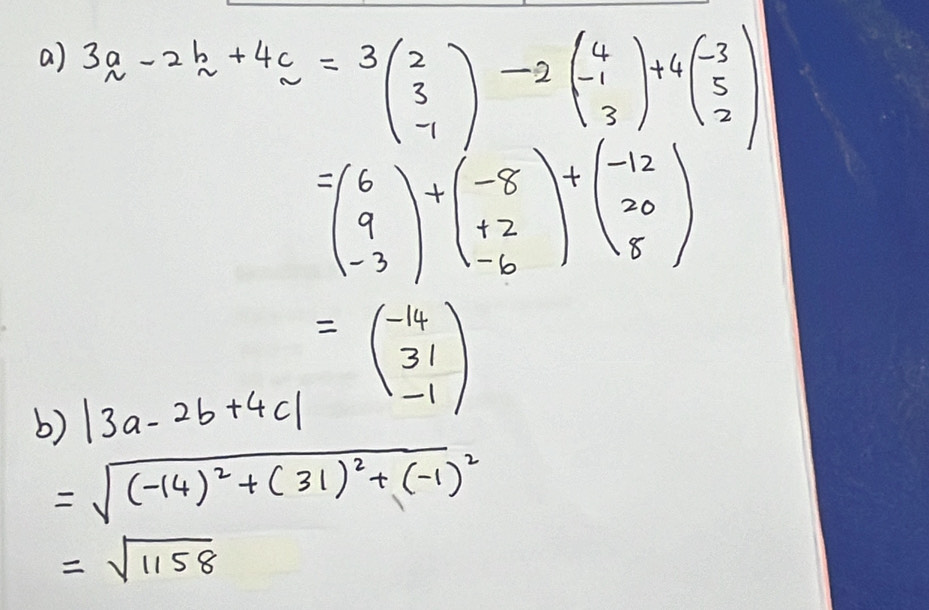 a) 3a - 2b + 4c = 3 (2 3 -1) -2 (4 -1 3) + 4 (-3 5 2)
= (6 9 -3) + (-8 +2 -6) + (-12 20 8)
= (-14 31 -1)
b) |3a - 2b + 4c|
= √((-14)² + (31)² + (-1)²)
= √1158